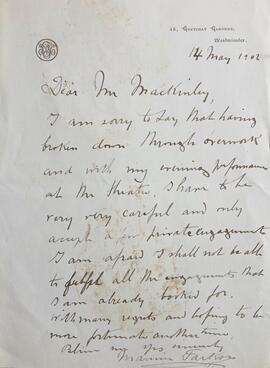 Gardens,
Westminster.
14 May 1902
Dear Mr MacKinley,
I am sorry to say that having
broken down through overwork
and with my evening performance
at the theatre I have to be
very very careful and only
accept a few private engagements
I am afraid I shall not be able
to fulfil all the engagements that
I am already booked for.
With many regrets and hoping to be
more fortunate another time
me yrs sincerely